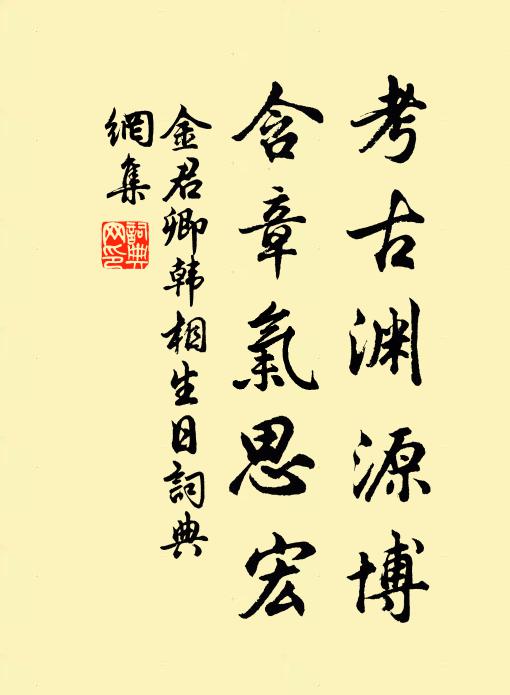 考古渊源博
含章氣思宏
金君卿韩相生日詞典
網集
詞典
网印